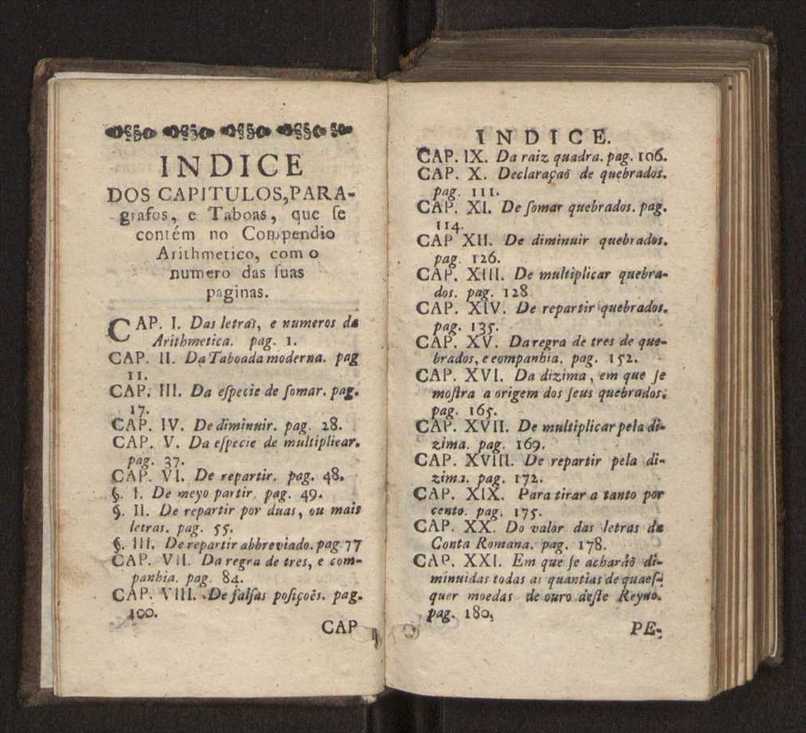 INDICE
DOS CAPITULOS, PARA-
grafos, e Taboas, que ſe
contém no Compendio
Arithmetico, com o
numero das ſuas
paginas.
CAP. I. Das letras, e numeros da
Arithmetica. pag. 1.
CAP. II. Da Taboada moderna. pag
11.
CAP. III. Da eſpecie de ſomar. pag.
17.
CAP. IV. De diminuir. pag. 28.
CAP. V. Da eſpecie de multiplicar.
pag. 37.
CAP. VI. De repartir. pag. 48.
§. I. De meyo partir pag. 49.
§. II. De repartir por duas, ou mais
letras. pag. 55.
§. III. De repartir abbreviado. pag 77
CAP. VII. Da regra de tres, e com-
panhia. pag. 84.
CAP. VIII. De falſas poſiçoẽs. pag.
100.
CAP
INDICE.
CAP. IX. Da raiz quadra. pag. 106.
CAP. X. Declaraçaõ de quebrados.
pag. 111.
CAP. XI. De ſomar quebrados. pag.
114.
CAP XII. De diminuir quebrados.
pag. 126.
CAP. XIII. De multiplicar quebra-
dos. pag. 128
CAP. XIV. De repartir quebrados.
pag. 135.
CAP. XV. Da regra de tres de que-
brados, e companhia. pag. 152.
CAP. XVI. Da dizima, em que ſe
moſtra a origem dos ſeus quebrados.
pag. 165.
CAP. XVII. De multiplicar pela di-
zima. pag. 169.
CAP. XVIII. De repartir pela di-
zima. pag. 172.
CAP. XIX. Para tirar a tanto por
cento. pag. 175.
CAP. XX. Do valor das letras da
Conta Romana. pag. 178.
CAP. XXI. Em que ſe acharáõ di-
minuidas todas as quantias de quaeſ-
quer moedas de ouro deſte Reyno.
pag. 180,
PE-